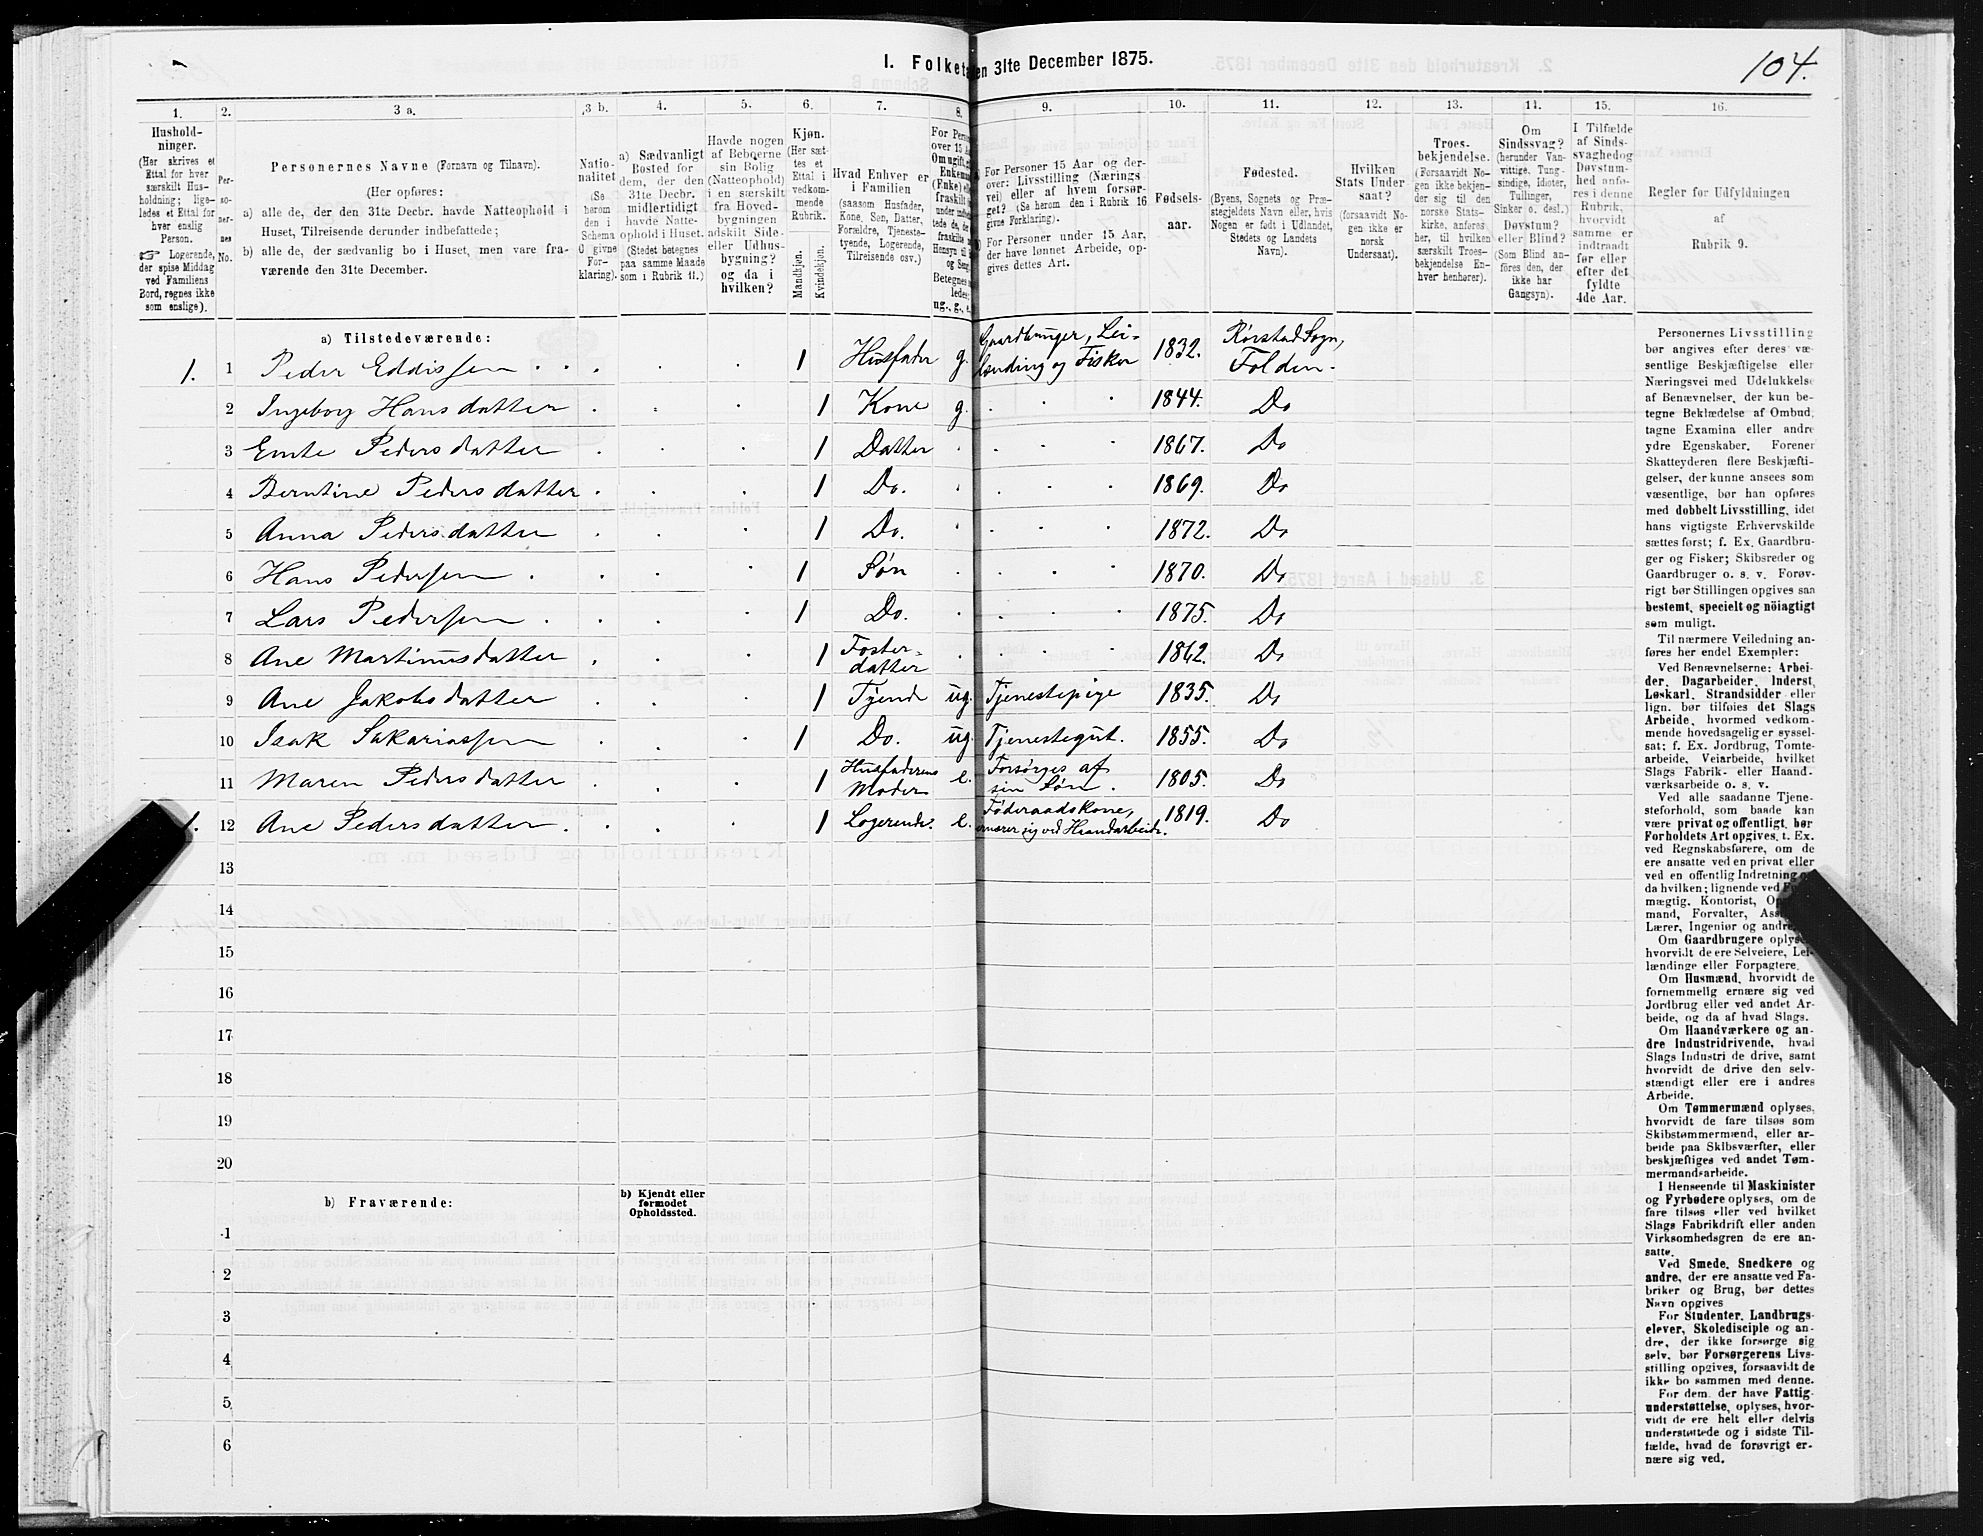 I. Folketa en 31te December 1875.
104.
1. 2. 3 a. 3 b. 4. 5. 6. 7. 8. 9. 10. 11. 12. 13. 14. 15. 16.
Hushold-
ninger.
(Her skrives et
Ettal for hver
særskilt Hus-
holdning; lige-
ledes et Ettal for
hver enslig
Person.
☞ Logerende,
der spise Middag
ved Familiens
Bord, regnes ikke
som enslige).
Per-
so-
ner-
nes
No.
Personernes Navne (Fornavn og Tilnavn).
(Her opføres:
a) alle de, der den 31te Decbr. havde Natteophold i
Huset, Tilreisende derunder indbefattede;
b) alle de, der sædvanlig bo i Huset, men vare fra-
værende den 31te December.
Natio-
nalitet
(Se
herom
den i
Schema
O givne
For-
klaring).
a) Sædvanligt
Bosted for
dem, der den
31te Decbr.
midlertidigt
havde Natte-
ophold i Huset.
(Stedet betegnes
paa samme Maade
som i Rubrik 11.)
Havde nogen
af Beboerne
sin Bolig
(Natteophold)
i en særskilt
fra Hoved-
bygningen
adskilt Side-
eller Udhus-
bygning?
og da i
hvilken?
Kjøn.
(Her sæt-
tes et
Ettal i
vedkom-
mende
Rubrik.
Mandkjøn.
Kvindekjøn.
Hvad Enhver er
i Familien
(saasom Husfader,
Kone, Søn, Datter,
Forældre, Tjeneste-
tyende, Logerende,
Tilreisende osv.)
For Perso
over 15 A
Om ugift, g
Enkem
(Enke) e
fraskilt
under, indbe
tede de, de
fraskilte
Hensyn til
og Seng
Betegnes
ledes:
ug., g., e.
For Personer 15 Aar og der-
over: Livsstilling (Nærings-
vei) eller af hvem forsør-
get? (Se herom den i Rubrik 16
givne Forklaring).
For Personer under 15 Aar,
der have lønnet Arbeide, op-
gives dettes Art.
Fødsels-
aar.
Fødested.
(Byens, Sognets og Præ-
stegjeldets Navn eller, hvis
Nogen er født i Udlandet,
Stedets og Landets
Navn).
Hvilken
Stats Under
saat?
(forsaavidt No-
gen ikke er
norsk
Undersaat).
Troes-
bekjendelse.
(Forsaavidt No-
gen ikke bekjen-
der sig til den
norske Stats-
kirke, anføres
her, til hvilken
særskilt Troes-
bekjendelse En-
hver henhører).
Om
Sindssvag?
(herunder Van-
vittige, Tung-
sindige, Idioter,
Tullinger,
Sinker o. desl.)
Døvstum?
eller Blind?
(Som Blind an-
føres den, der
ikke har
Gangsyn).
I Tilfælde
af Sinds-
svaghedog
Døvstum-
hed anfø-
res i denne
Rubrik,
hvorvidt
samme er
indtraadt
før eller
efter det
fyldte
4de Aar.
Regler for Udfyldningen
af
Rubrik 9.
a) Tilstedeværende:
1. 1 Peder Eddissen 1 Husfader g. Gaardbruger, Lei-
lænding og Fisker 1832. Rørstad Sogn,
Folden.
2 Ingeborg Hansdatter 1 Kone g. 1844. Do
3 Emte Pedersdatter 1 Datter 1867. Do
4 Berntine Pedersdatter 1 Do. 1869. Do
5 Anna Pedersdatter 1 Do. 1872. Do
6 Hans Pedersen 1 Søn 1870. Do
7 Lars Pedersen 1 Do. 1875. Do
8 Ane Martinusdatter 1 Foster-
datter 1862. Do
9 Ane Jakobsdatter 1 Tyende ug. Tjenestepige 1835. Do
10 Isak Sakariassen 1 Do. ug. Tjenestegut. 1855. Do
11 Maren Pedersdatter 1 Husfaderens
Moder e. Forsørges af
sin Søn. 1805. Do
1. 12 Ane Pedersdatter 1 Logerende. e. Føderaadskone,
ernærer sig ved Haandarbeide. 1819. Do
13
14
15
16
17
18
19
20
b) Fraværende:
b) Kjendt eller
formodet
Opholdssted.
1
2
3
4
5
6
Personernes Livsstilling
bør angives efter deres væ-
sentlige Beskjæftigelse eller
Næringsvei med Udelukkelse
af Benævnelser, der kun be-
tegne Beklædelse af Ombud,
tagne Examina eller andre
ydre Egenskaber. Forener
Skatteyderen flere Beskjæfti-
gelser, der kunne ansees som
væsentlige, bør han opføres
med dobbelt Livsstilling, idet
hans vigtigste Erhvervskilde
sættes først; f. Ex. Gaardbru-
ger og Fisker; Skibsreder og
Gaardbruger o. s. v. Forøv-
rigt bør Stillingen opgives saa
bestemt, specielt og nöiagtigt
som muligt.
Til nærmere Veiledning an-
føres her endel Exempler:
Ved Benævnelserne: Arbei-
der, Dagarbeider, Inderst,
Løskarl, Strandsidder eller
lign. bør tilføies det Slags
Arbeide, hvormed vedkom-
mende hovedsagelig er syssel-
sat; f. Ex. Jordbrug, Tomte-
arbeide, Veiarbeide, hvilket
Slags Fabrik- eller Haand-
værksarbeide o. s. v.
Ved alle saadanne Tjene-
steforhold, som baade kan
være privat og offentligt, bør
Forholdets Art opgives, t. Ex.
ved Regnskabsførere, om de
ere ansatte ved en privat eller
ved en offentlig Indretning
da hvilken; lignende ved
mægtig, Kontorist,
mand, Forvalter,
Lærer, Ingeniør og andre
Om Gaardbrugere oplyse
hvorvidt de ere Selveiere, Lei-
lændinge eller Forpagtere.
Om Husmænd, hvorvidt de
fornemmelig ernære sig ved
Jordbrug eller ved andet Ar-
beide, og da af hvad Slags.
Om Haandværkere og an-
dre Industridrivende, hvad
Slags Industri de drive, samt
hvorvidt de drive den selv-
stændigt eller ere i andres
Arbeide.
Om Tømmermænd oplyses,
hvorvidt de fare tilsøs som
Skibstømmermænd, eller ar-
beide paa Skibsværfter, eller
beskjæftiges ved andet Tøm-
mermandsarbeide.
I Henseende til Maskinister
og Fyrbødere oplyses, om de
fare tilsøs eller ved hvilket
Slags Fabrikdrift eller anden
Virksomhedsgren de ere an-
satte.
Ved Smede, Snedkere og
andre, der ere ansatte ved Fa-
briker og Brug, bør dettes
Navn opgives
For Studenter, Landbrugs-
elever, Skoledisciple og an-
dre, der ikke forsørge sig
selv, bør Forsørgerens Livs-
stilling opgives, forsaavidt de
ikke bo sammen med denne.
For dem, der have Fattig-
understøttelse, oplyses, hvor-
vidt de ere helt eller delvis
understøttede og i sidste Til-
fælde, hvad de forøvrigt er-
nære sig ved.